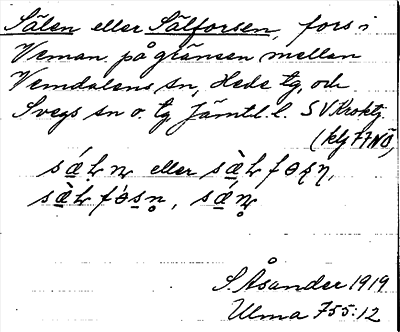 Sälen eller Sälforsen, fors i
Veman på gränsen mellan
Vemdalens sn, Hede tg, och
Svegs sn o. tg Jämtl. l. SV Kroktj.
(klj 77NÖ)
eller
S. Åsander 1919
Ulma 755:12